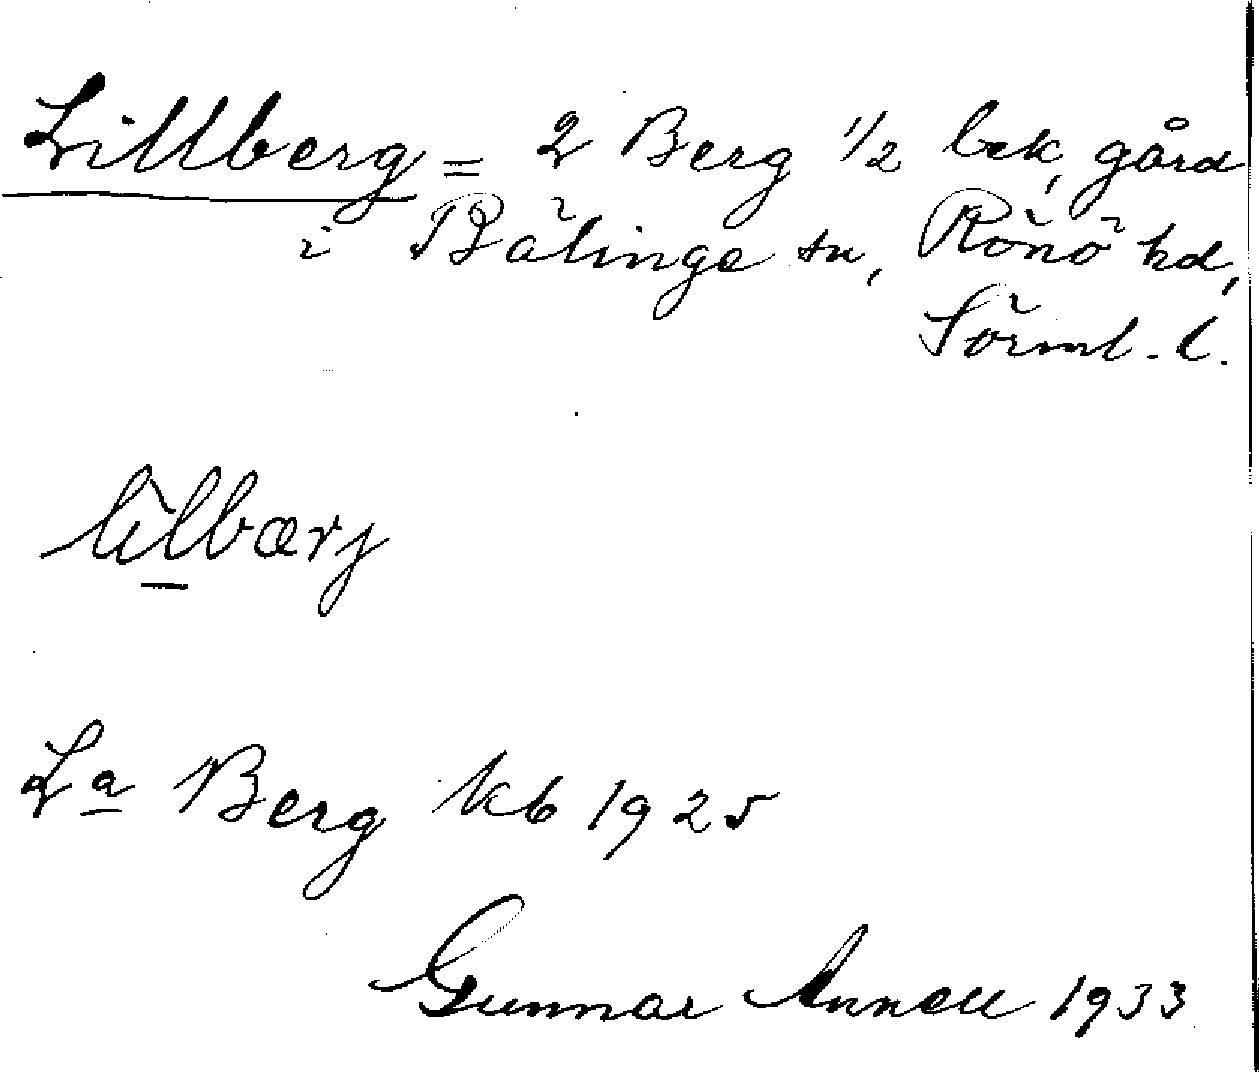 Lillberg = 2 Berg 1/2 bek, gård
i Bälinge sn, Rönö hd,
Sörml. l.
lìlbærj
La Berg kb 1925
Gunnar Annell 1933